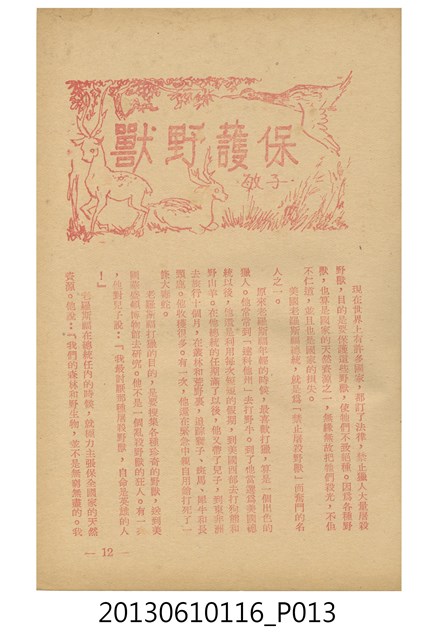 保護野獸
敏子
現在世界上有許多國家，都訂了法律，禁止獵人大量屠殺
野獸，目的是要保護這些野獸，使牠們不致絕種。因爲各種野
獸，也算是國家的天然資源之一，無緣無故把牠們殺光，不但
不仁道，並且也是國家的損失。
美國老羅斯福總統，就是爲「禁止屠殺野獸」而奮鬥的名
人之一。
原來老羅斯福年輕的時候，最喜歡打獵，算是一個出色的
獵人。他常常到「達科他州」去打野牛。到了他當選爲美國總
統以後，他還是利用每次短短的假期，到美國西部去打
野山羊。在他總統的任期滿了以後，他又帶了兒子，到東非洲
去旅行十個月，在叢林和荒野裏，追蹤獅子、斑馬、犀牛和長
頸鹿。他收穫很多。有一次，他還在緊急中親自用槍打死了一
條大
老羅斯福打獵的目的，是要搜集各種珍奇的野獸，送到美
國
，他對兒子說：「我最討厭那種屠殺野獸，自命是英雄的人
！」
老羅斯福在總統任內的時候，就極力主張保全國家的天然
資源。他說：「我們的森林和野生物，並不是無窮無盡的。我
— 12 —
20130610116_P013